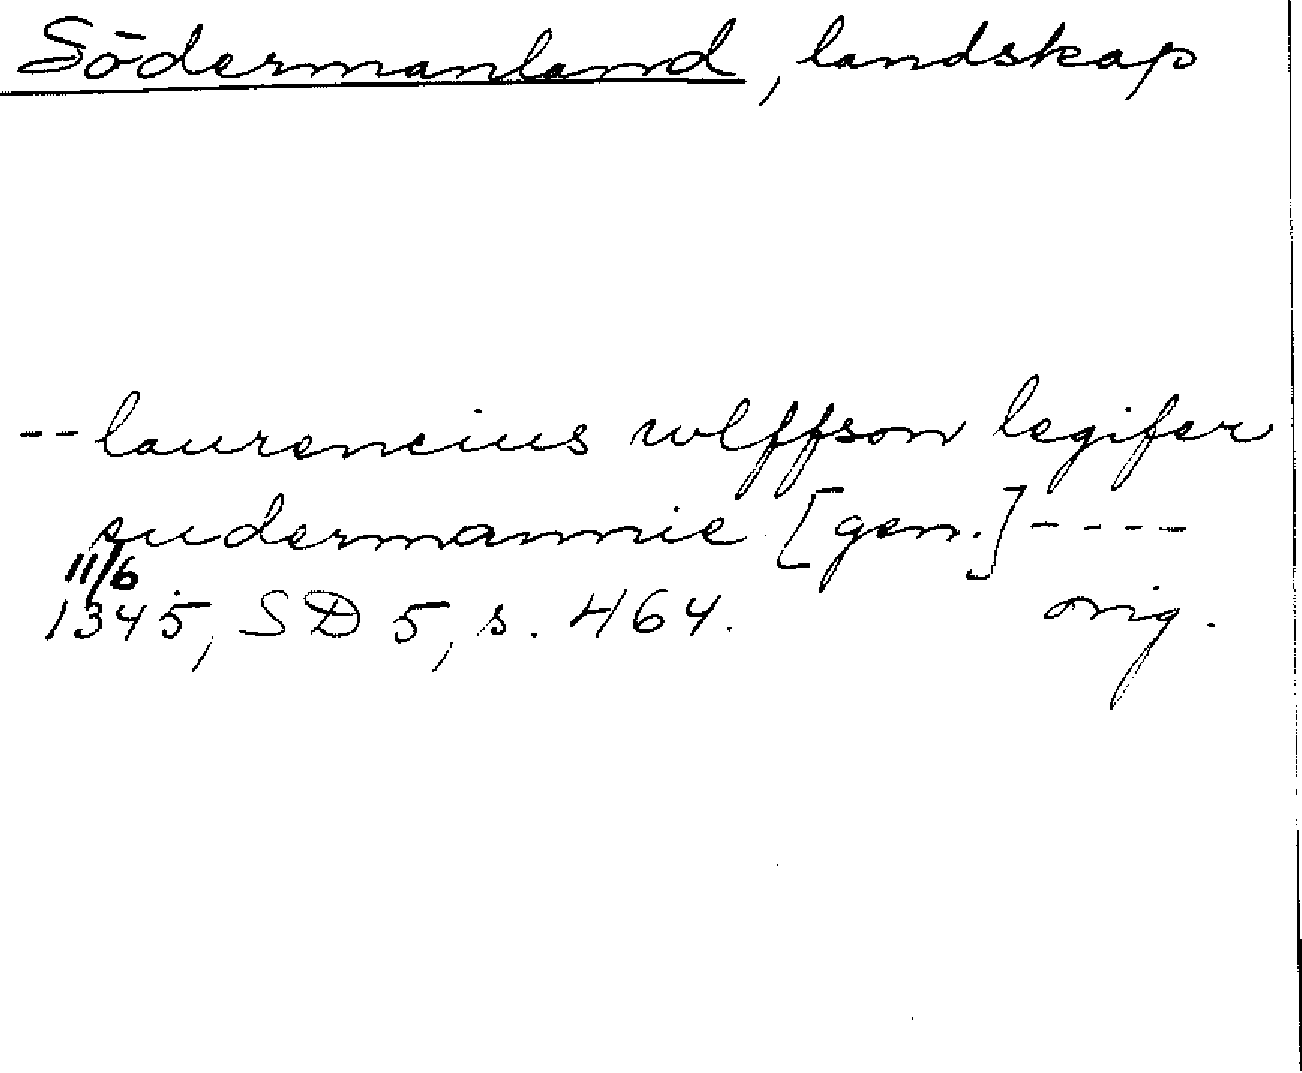 Södermanland, landskap
-- laurencius wlffson legifer
sudermannie [gen.] ----
11/6
1345, SD 5, s. 464. orig.